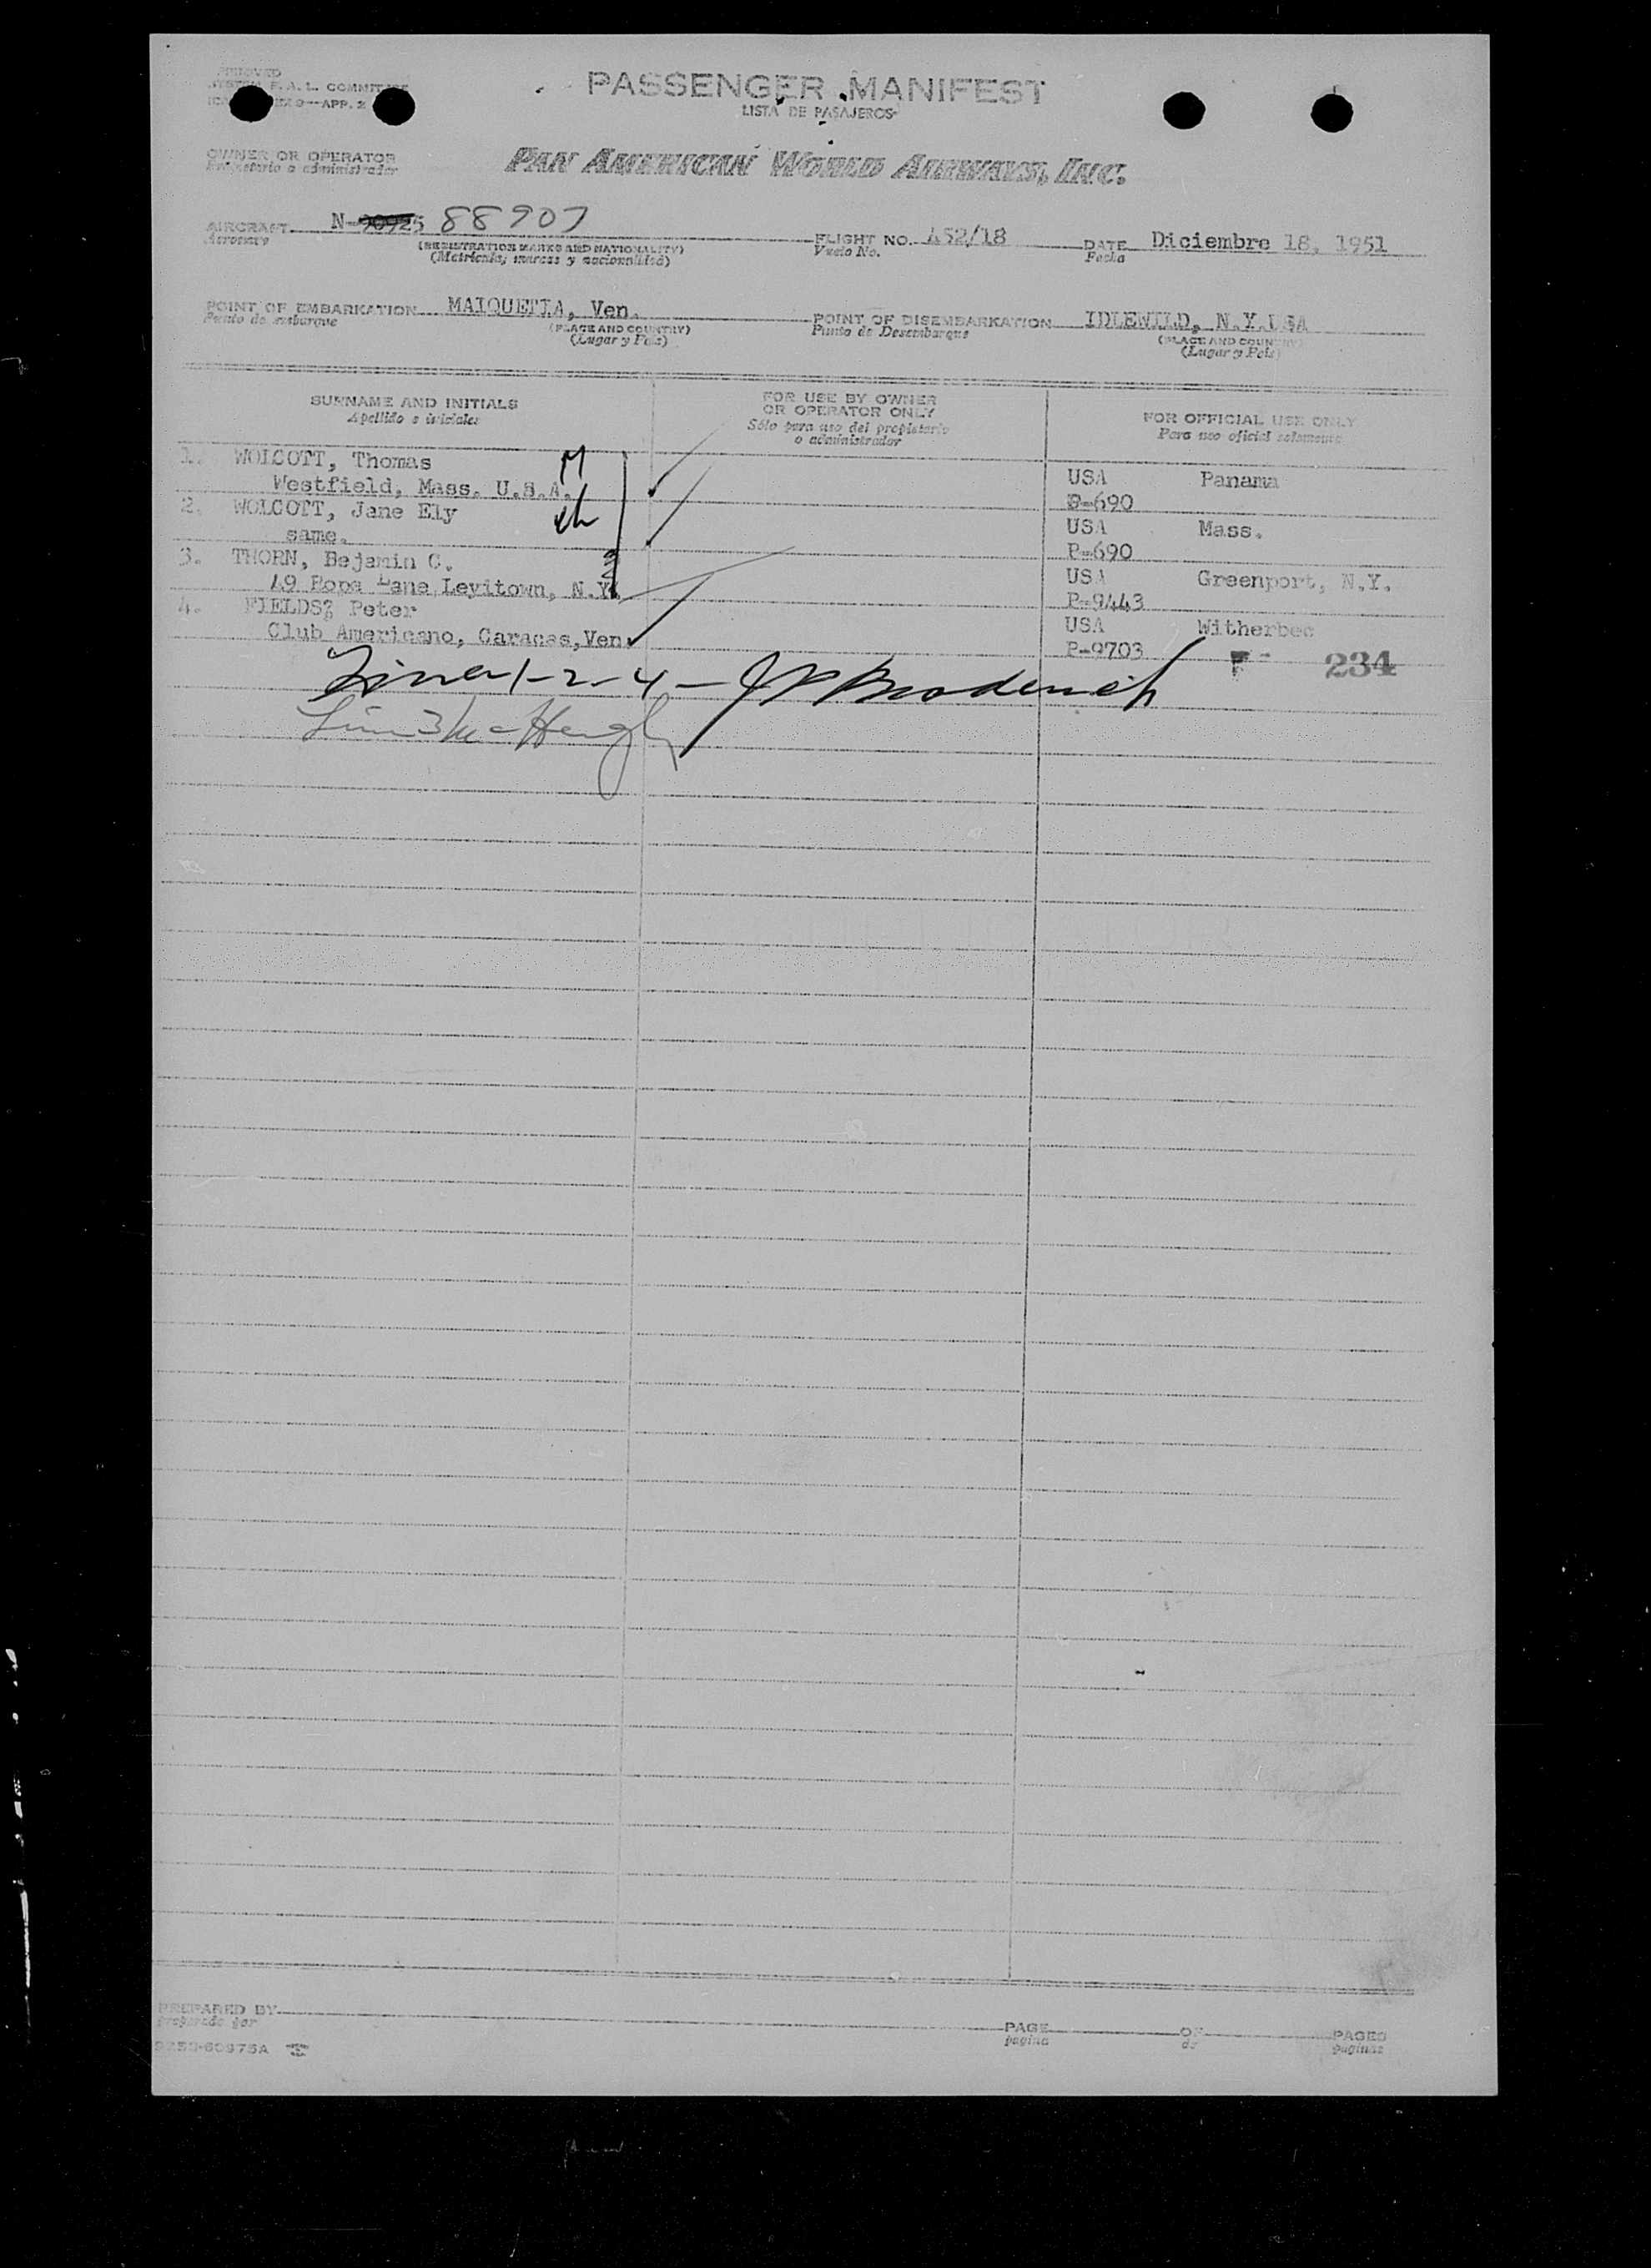 PASSENGER MANIFEST
LISTA DE PASAJEROS
F. A. L. COMMITTEE
9—APR. 2
OWNER OR OPERATOR
Propietario o administrador
PAN AMERICAN WORLD AIRWAYS, INC.
AIRCRAFT N- 88907
Aeronave
(REGISTRATION MARKS AND NATIONALITY)
(Matricula, marcas y nacionalidad)
FLIGHT NO. 452/18
Vuelo No.
DATE Diciembre 18, 1951
Fecha
POINT OF EMBARKATION MAIQUETIA, Ven.
Punto de embarque
(PLACE AND COUNTRY)
(Lugar y Pais)
POINT OF DISEMBARKATION IDLEWILD, N.Y.USA
Punto de Desembarque
(PLACE AND COUNTRY)
(Lugar y Pais)
SURNAME AND INITIALS
Apellido e iniciales
FOR USE BY OWNER
OR OPERATOR ONLY
Sólo para uso del propietario
o administrador
FOR OFFICIAL USE ONLY
Para uso oficial solamente
1. WOLCOTT, Thomas USA Panama
Westfield, Mass. U.S.A. P-690
2. WOLCOTT, Jane Ely USA Mass.
same. P-690
3. THORN, Bejamin C. USA Greenport, N.Y.
49 Lane Levitown, N.Y. P-9443
4. FIELDS, Peter USA Witherbee
Club Americano, Caracas,Ven. P-9703
F- 234
Lines 1-2-4 - Broderick
Line 3
PREPARED BY
preparado por
PAGE OF PAGES
pagina de paginas
60975A